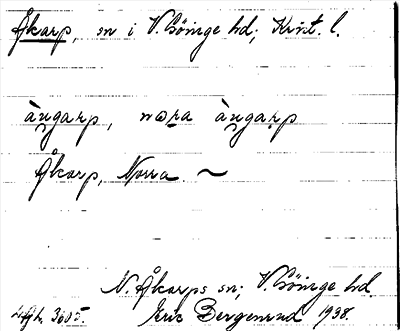 Åkarp, sn i V. Göinge hd; Krist. l.
àŋgarp, nωra àŋgarp
Åkarp, Norra ~
N. Åkarps sn; V. Göinge hd.
3005. Eric Bergenrud 1938.